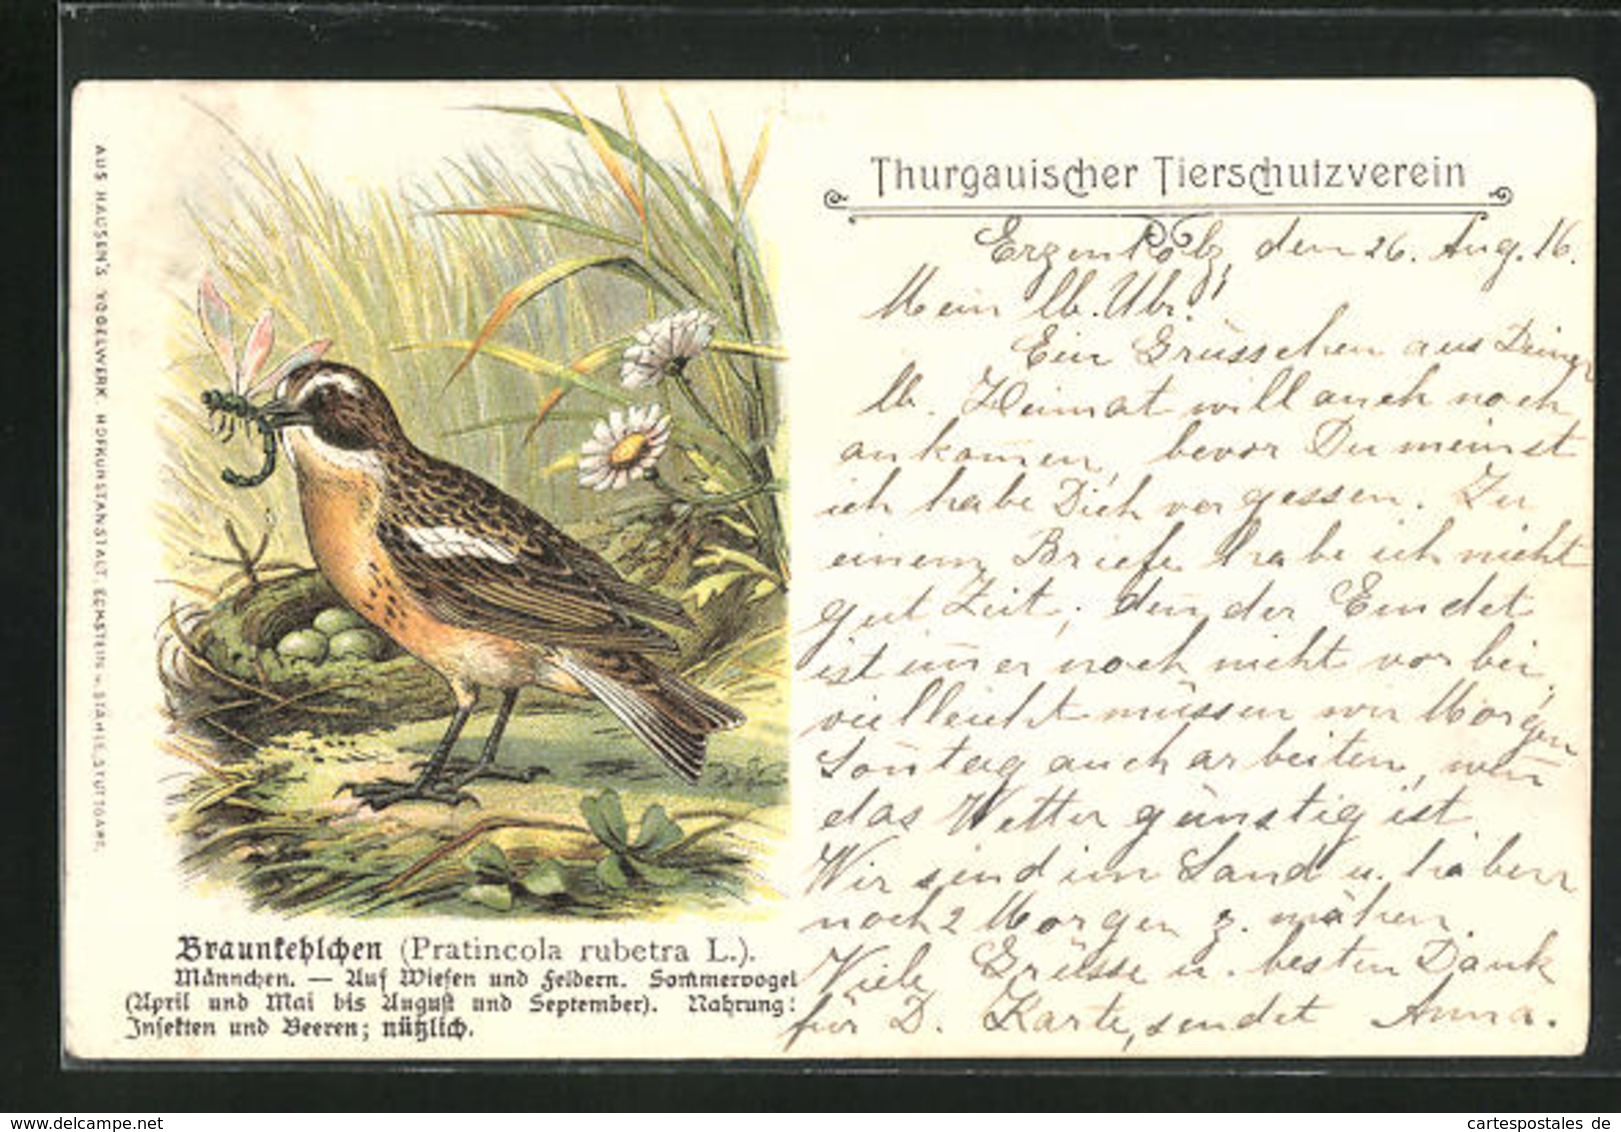 Thurgauischer Tierschutzverein
Erzenholz, den 26. Aug. 16.
Mein lb. Ubr.!
Ein Grüsschen aus Deiner
lb. Heimat will auch noch
ankom̅en, bevor Du meinst
ich habe Dich vergessen. Zu
einem Briefe habe ich nicht
gut Zeit, den̅ der Emdet
ist im̅er noch nicht vorbei,
vielleicht müssen wir Morgen
Son̅tag auch arbeiten, wen̅
das Wetter günstig ist
Wir sind im Land u. haben
noch 2 Morgen z. mähen.
Viele Grüsse u. besten Dank
für D. Karte, sendet Anna.
Braunkehlchen (Pratincola rubetra L.).
Männchen. — Auf Wiesen und Feldern. Sommervogel
(April und Mai bis August und September). Nahrung:
Insekten und Beeren; nützlich.
AUS HAUSEN'S VOGELWERK. HOFKUNSTANSTALT, ECKSTEIN u. STÄHLE, STUTTGART.
cartespostales de